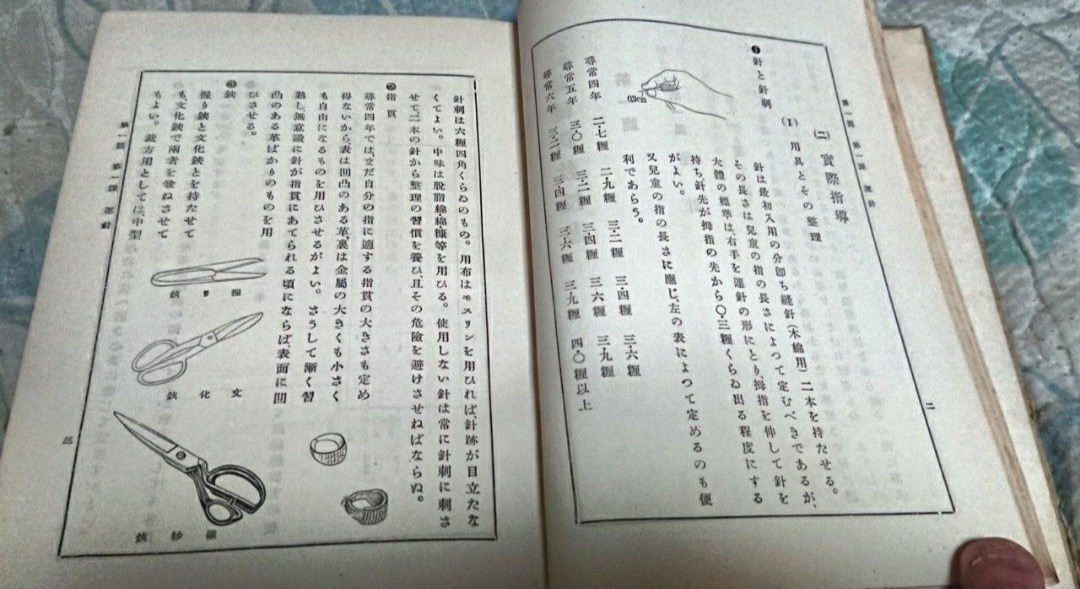 第一篇　第一課　運針
二
(二)　實際指導
(1)　用具とその整理
❶針と針刺
針は最初入用の分卽ち縫針(木綿用)二本を持たせる。
その長さは兒童の指の長さによつて定むべきであるが、
大體の標準は、右手を運針の形にとり、拇指を伸して針を
持ち、針先が拇指の先から〇・三糎くらゐ出る程度にする
がよい。
又兒童の指の長さに應じ、左の表によつて定めるのも便
利であらう。
0.3cm
尋常四年　二・七糎　二・九糎　三・二糎　三・四糎　三・六糎
尋常五年　三・〇糎　三・二糎　三・四糎　三・六糎　三・九糎
尋常六年　三・二糎　三・四糎　三・六糎　三・九糎　四・〇糎以上
針刺は六糎四角くらゐのもの。用布はモスリンを用ひれば、針跡が目立たな
くてよい。中味は脫脂綿、綿樣等を用ひる。使用しない針は常に針刺に刺さ
せて、二本の針から整理の習慣を養ひ、且その危險を避けさせねばならぬ。
❷指貫
尋常四年では、まだ自分の指に適する指貫の大きさも定め
得ないから、表は凹凸のある革、裏は金屬の大きくも小さく
も自由になるものを用ひさせるがよい。さうして漸く習
熟し、無意識に針が指貫にあてられる頃にならば、表面に凹
凸のある革ばかりのものを用
ひさせる。
❸鋏
握り鋏と文化鋏とを持たせて
も、文化鋏で兩者を兼ねさせて
もよい。裁方用としては、中型
握り鋏
文化鋏
羅紗鋏
第一篇　第一課　運針
三